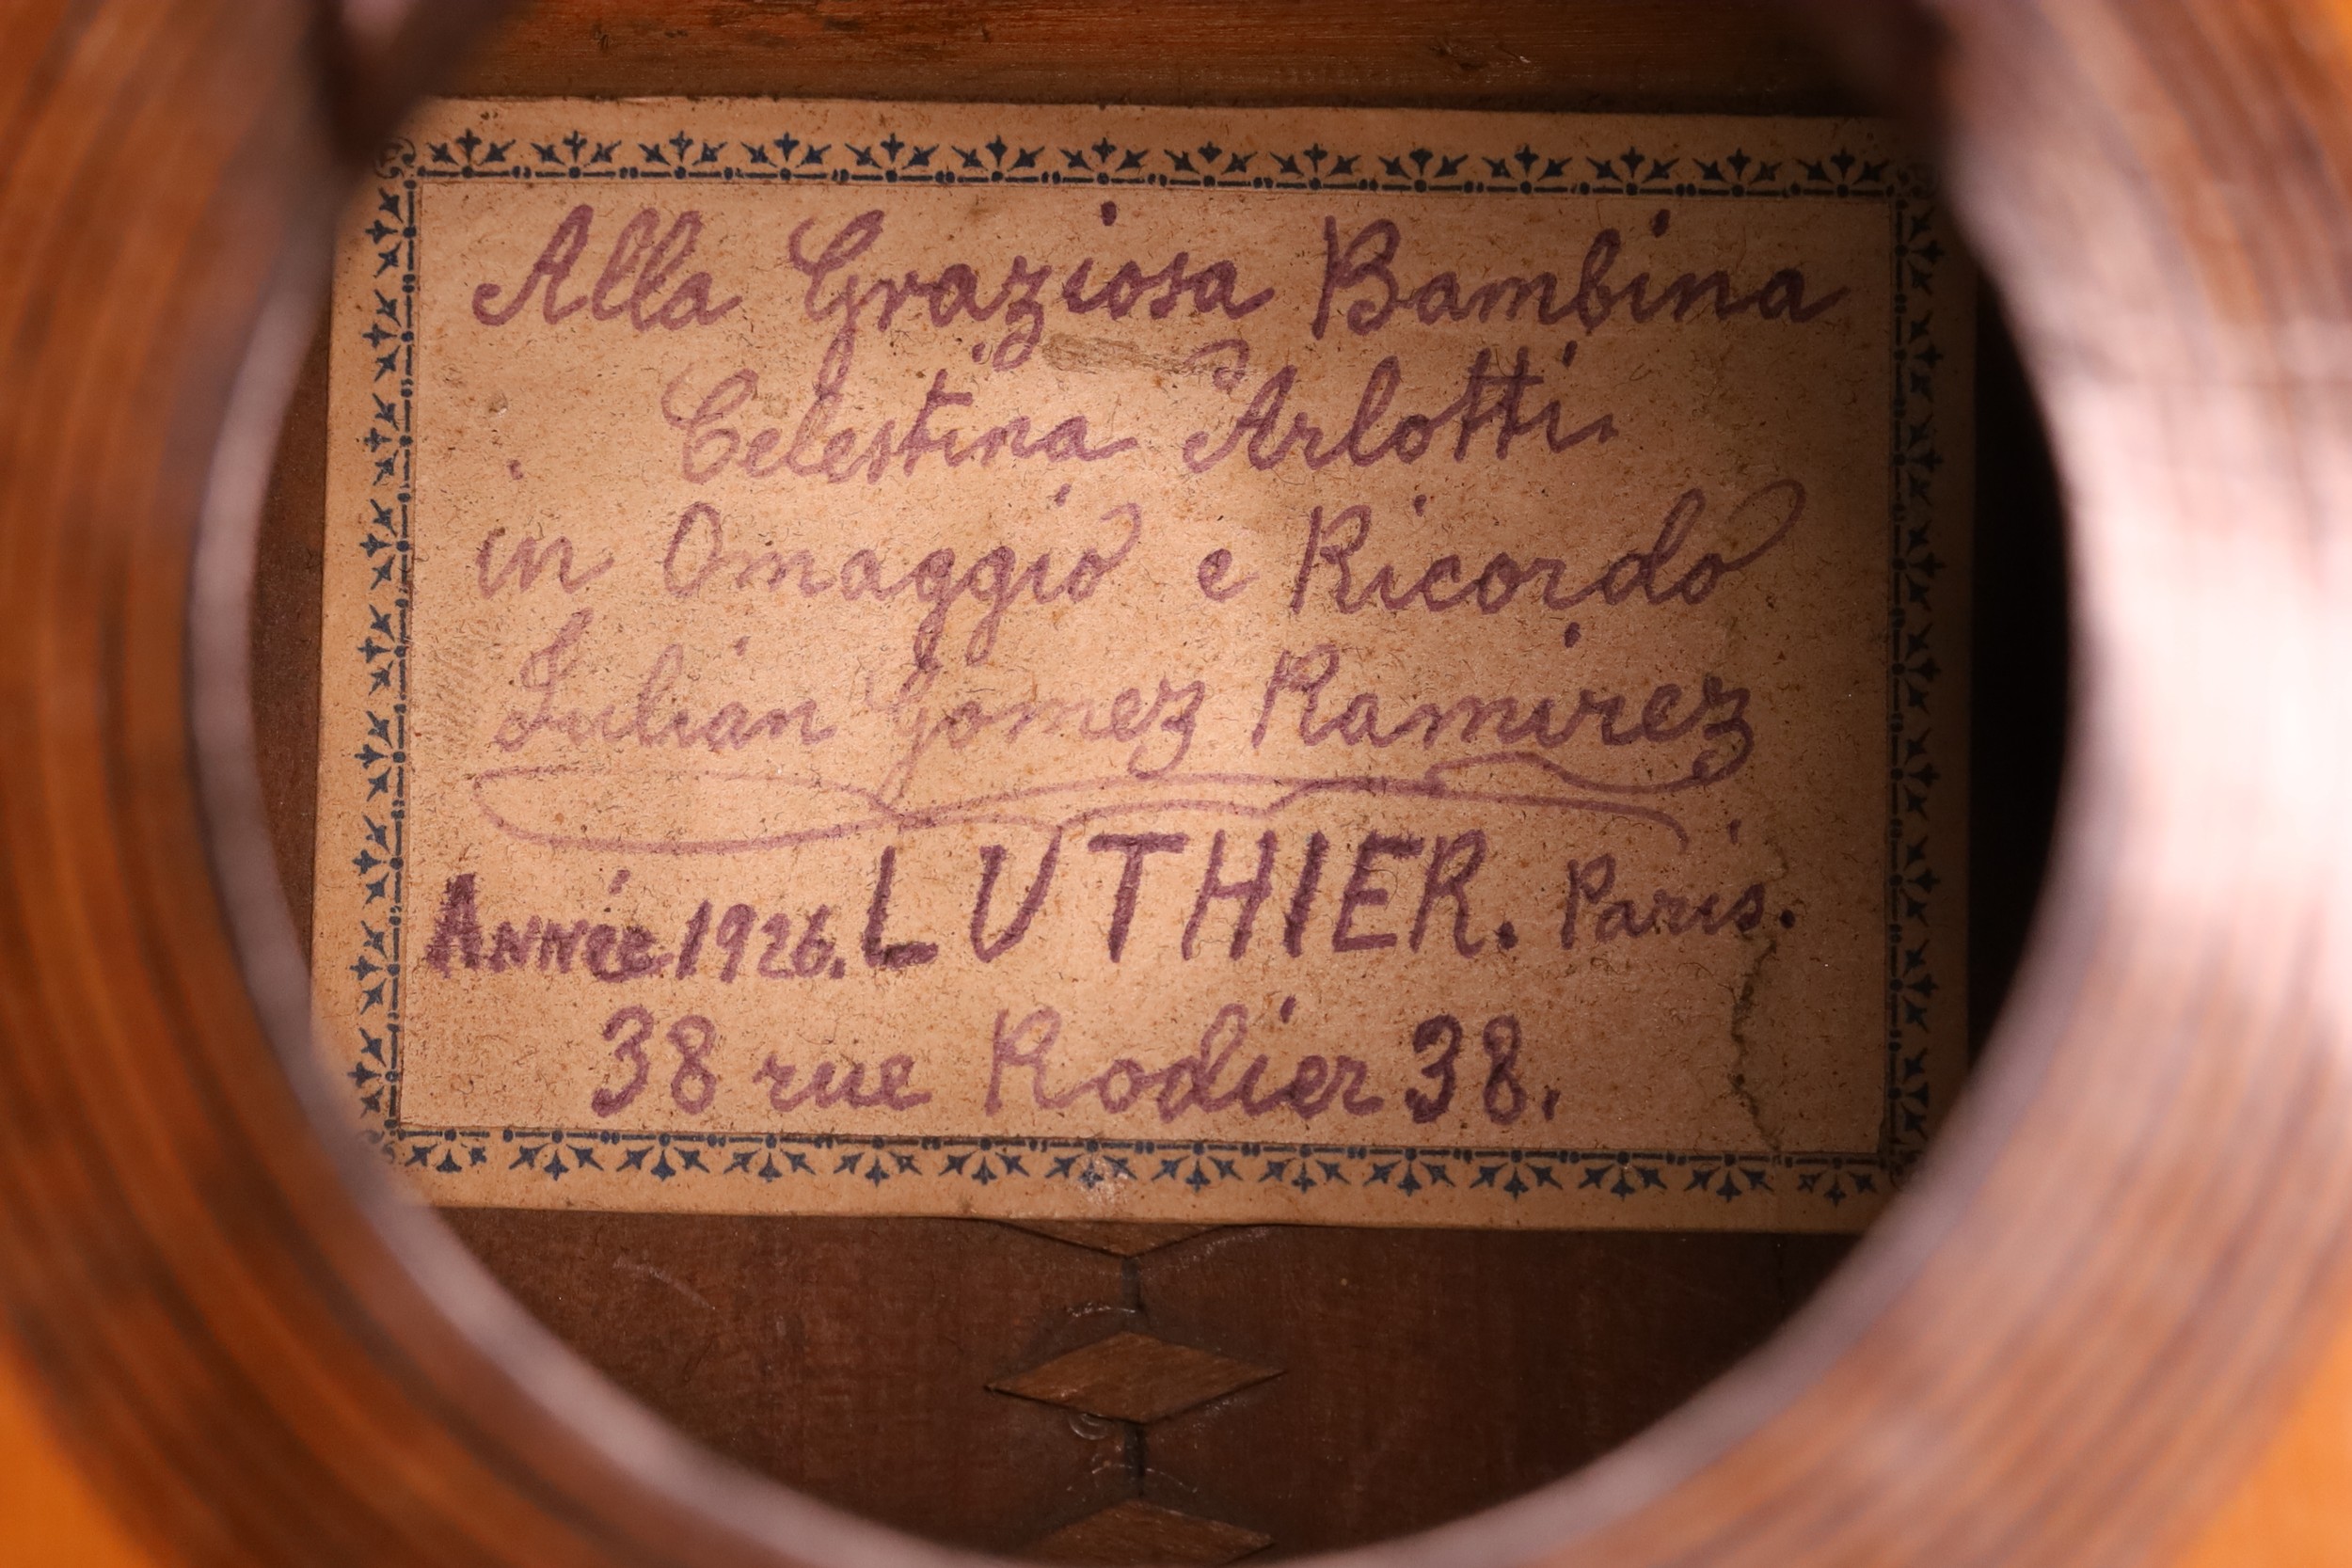 Alla Graziosa Bambina
Celestina Arlotti
in Omaggio e Ricordo
Julián Gomez Ramirez
Année 1926. LUTHIER. Paris.
38 rue Rodier 38.